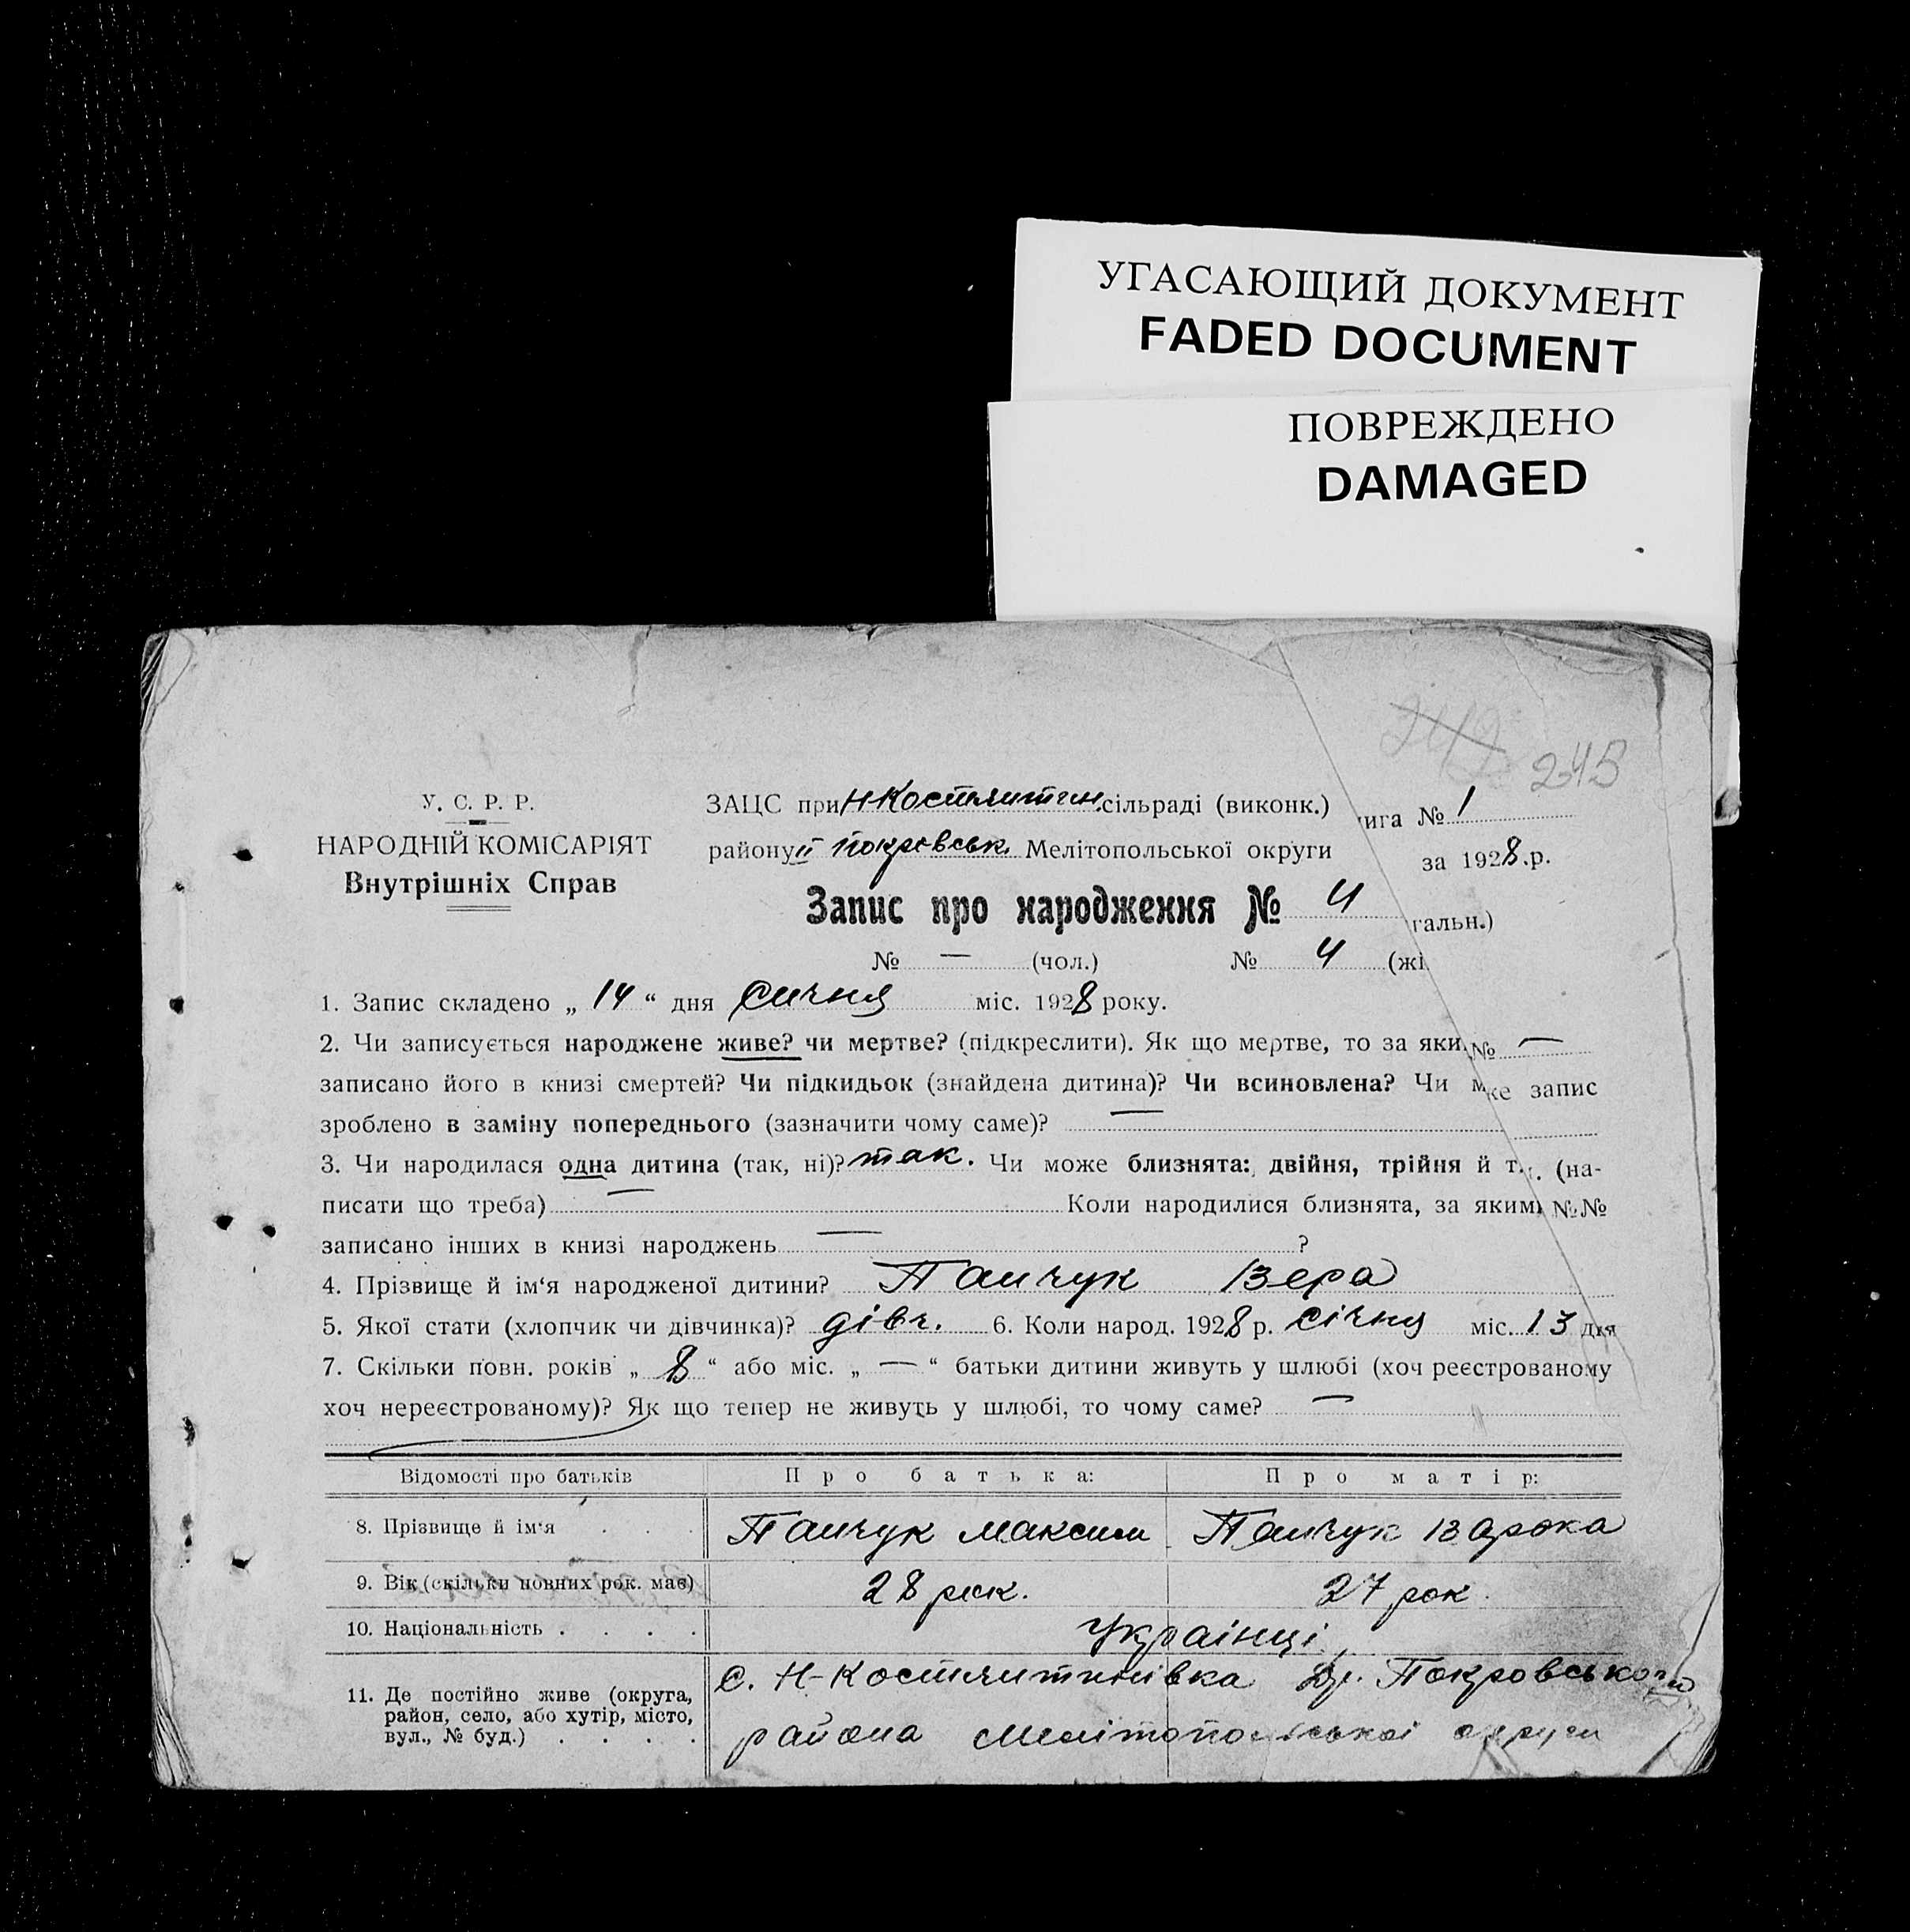 УГАСАЮЩИЙ ДОКУМЕНТ
FADED DOCUMENT
ПОВРЕЖДЕНО
DAMAGED
243
У. С. Р. Р.
НАРОДНІЙ КОМІСАРІЯТ
Внутрішніх Справ
ЗАЦС при Н-Костянтин. сільраді (виконк.) ига № 1
району ІІ Покровськ. Мелітопольської округи за 1928.р.
Запис про народження № 4 гальн.)
№ — (чол.) № 4 (жі
1. Запис складено „ 14 “ дня Сичня міс. 1928 року.
2. Чи записується народжене живе? чи мертве? (підкреслити). Як що мертве, то за яки № —
записано його в книзі смертей? Чи підкидьок (знайдена дитина)? Чи всиновлена? Чи м же запис
зроблено в заміну попереднього (зазначити чому саме)? —
3. Чи народилася одна дитина (так, ні)? так. Чи може близнята: двійня, трійня й т. (на-
писати що треба) — Коли народилися близнята, за яким №№
записано інших в книзі народжень — ?
4. Прізвище й ім‘я народженої дитини? Вера
5. Якої стати (хлопчик чи дівчинка)? дівч. 6. Коли народ. 1928 р. січня міс. 13 дня
7. Скільки повн. років „ 8 “ або міс. „ — “ батьки дитини живуть у шлюбі (хоч реєстрованому
хоч нереєстрованому)? Як що тепер не живуть у шлюбі, то чому саме? —
Відомості про батьків Про батька: Про матір:
8. Прізвище й ім‘я Максим
9. Вік (скільки повних рок. має) 28 рок. 27 рок.
10. Національність Українці
11. Де постійно живе (округа, район, село, або хутір, місто, вул., № буд.)
С. Н-Костянтинівка Др. Покровського
района Мелітопольської округи